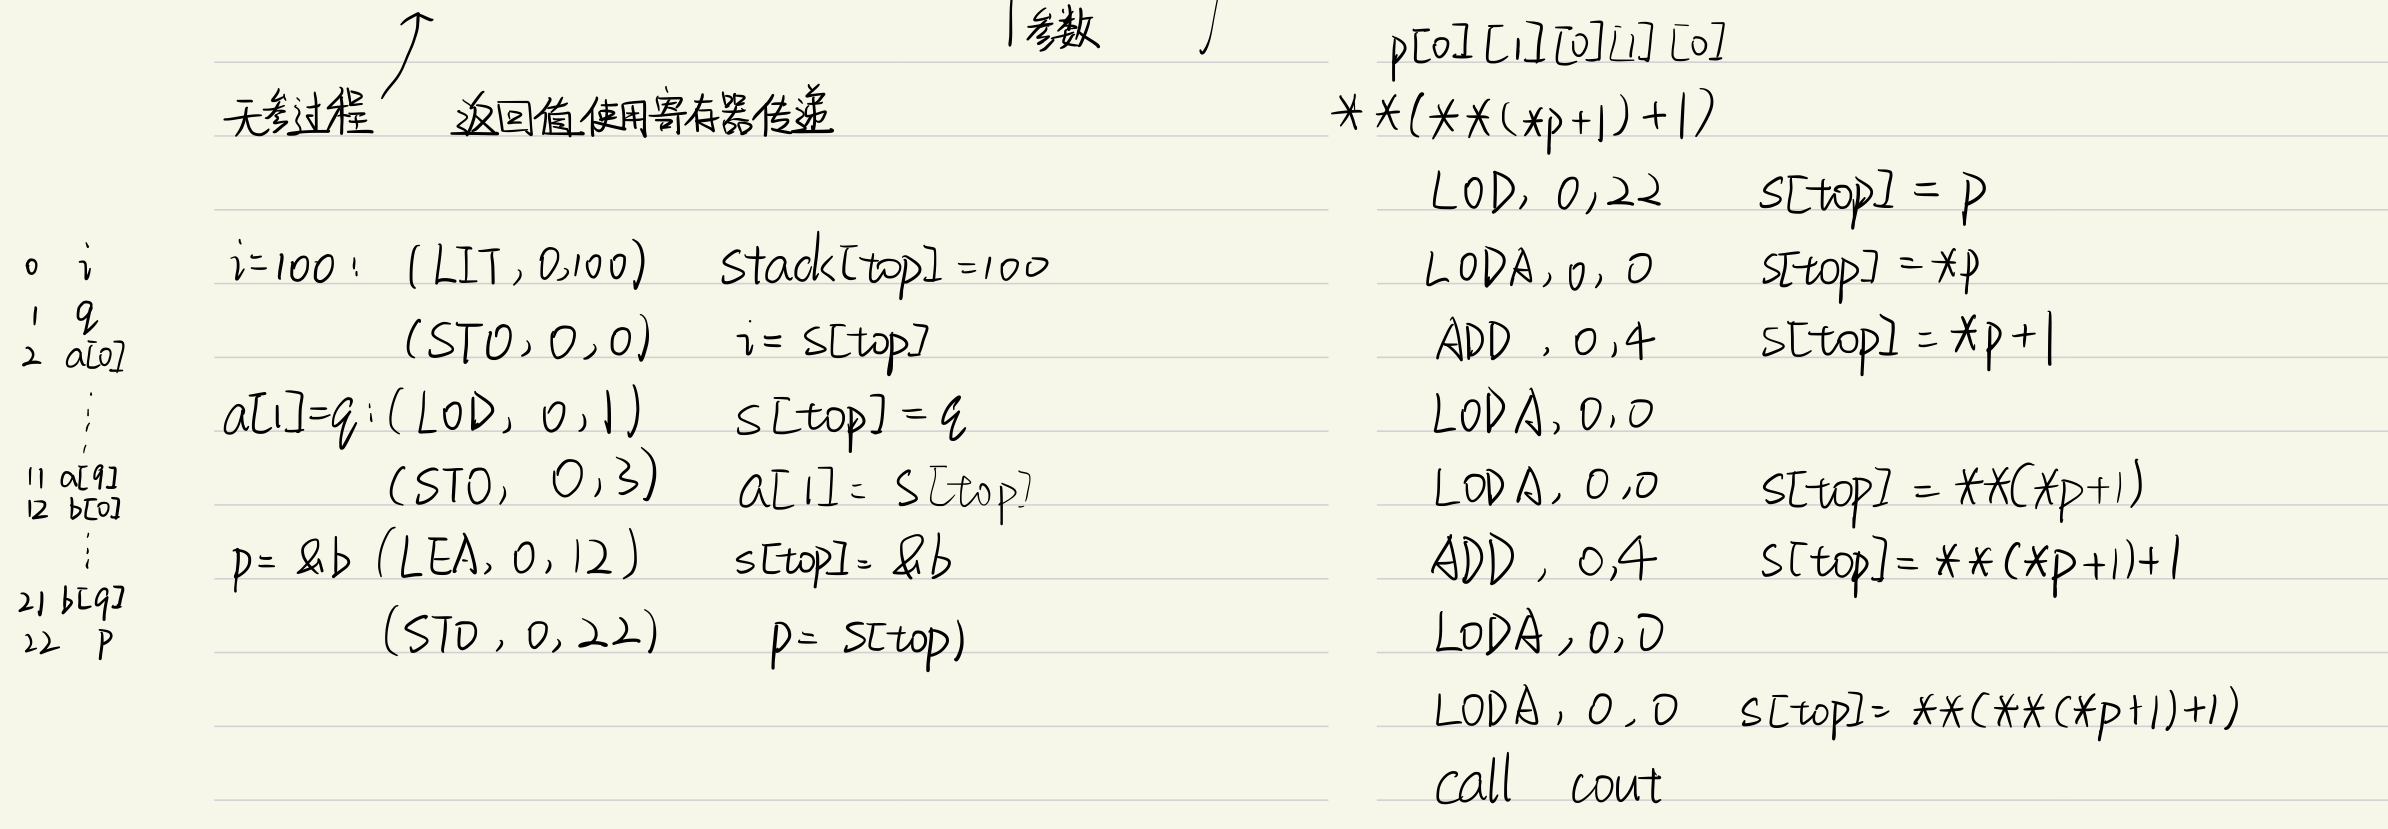 参数
无参过程 返回值使用寄存器传递
0 i
1 q
2 a[0]
⋮
11 a[9]
12 b[0]
⋮
21 b[9]
22 p
i=100: (LIT, 0,100) stack[top]=100
(STO, 0, 0) i= s[top]
a[1]=q: (LOD, 0, 1) s[top] = q
(STO, 0, 3) a[1] = s[top]
p= &b (LEA, 0, 12) s[top]= &b
(STO, 0, 22) p= s[top]
p[0][1][0][1][0]
**(**(*p+1)+1)
LOD, 0,22 s[top] = p
LODA, 0, 0 s[top] = *p
ADD , 0,4 s[top] = *p+1
LODA, 0,0
LODA, 0,0 s[top] = **(*p+1)
ADD , 0,4 s[top]= **(*p+1)+1
LODA, 0,0
LODA, 0,0 s[top]= **(**(*p+1)+1)
call cout